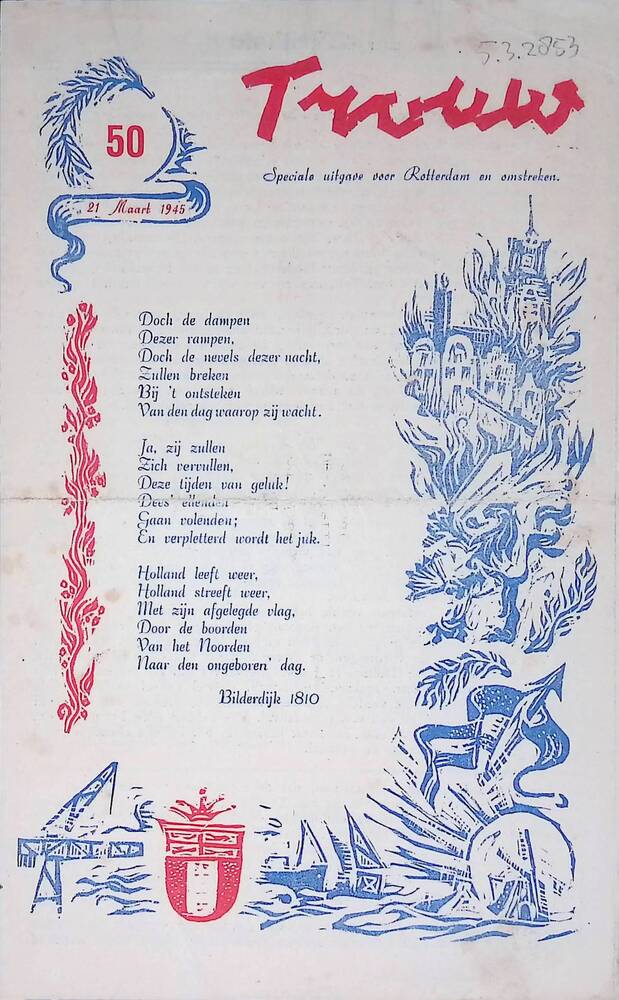 5.3.2853
Trouw
50
21 Maart 1945
Speciale uitgave voor Rotterdam en omstreken.
Doch de dampen
Dezer rampen,
Doch de nevels dezer nacht,
Zullen breken
Bij 't ontsteken
Van den dag waarop zij wacht.
Ja, zij zullen
Zich vervullen,
Deze tijden van geluk!
Dees' ellenden
Gaan volenden;
En verpletterd wordt het juk.
Holland leeft weer,
Holland streeft weer,
Met zijn afgelegde vlag,
Door de boorden
Van het Noorden
Naar den ongeboren' dag.
Bilderdijk 1810